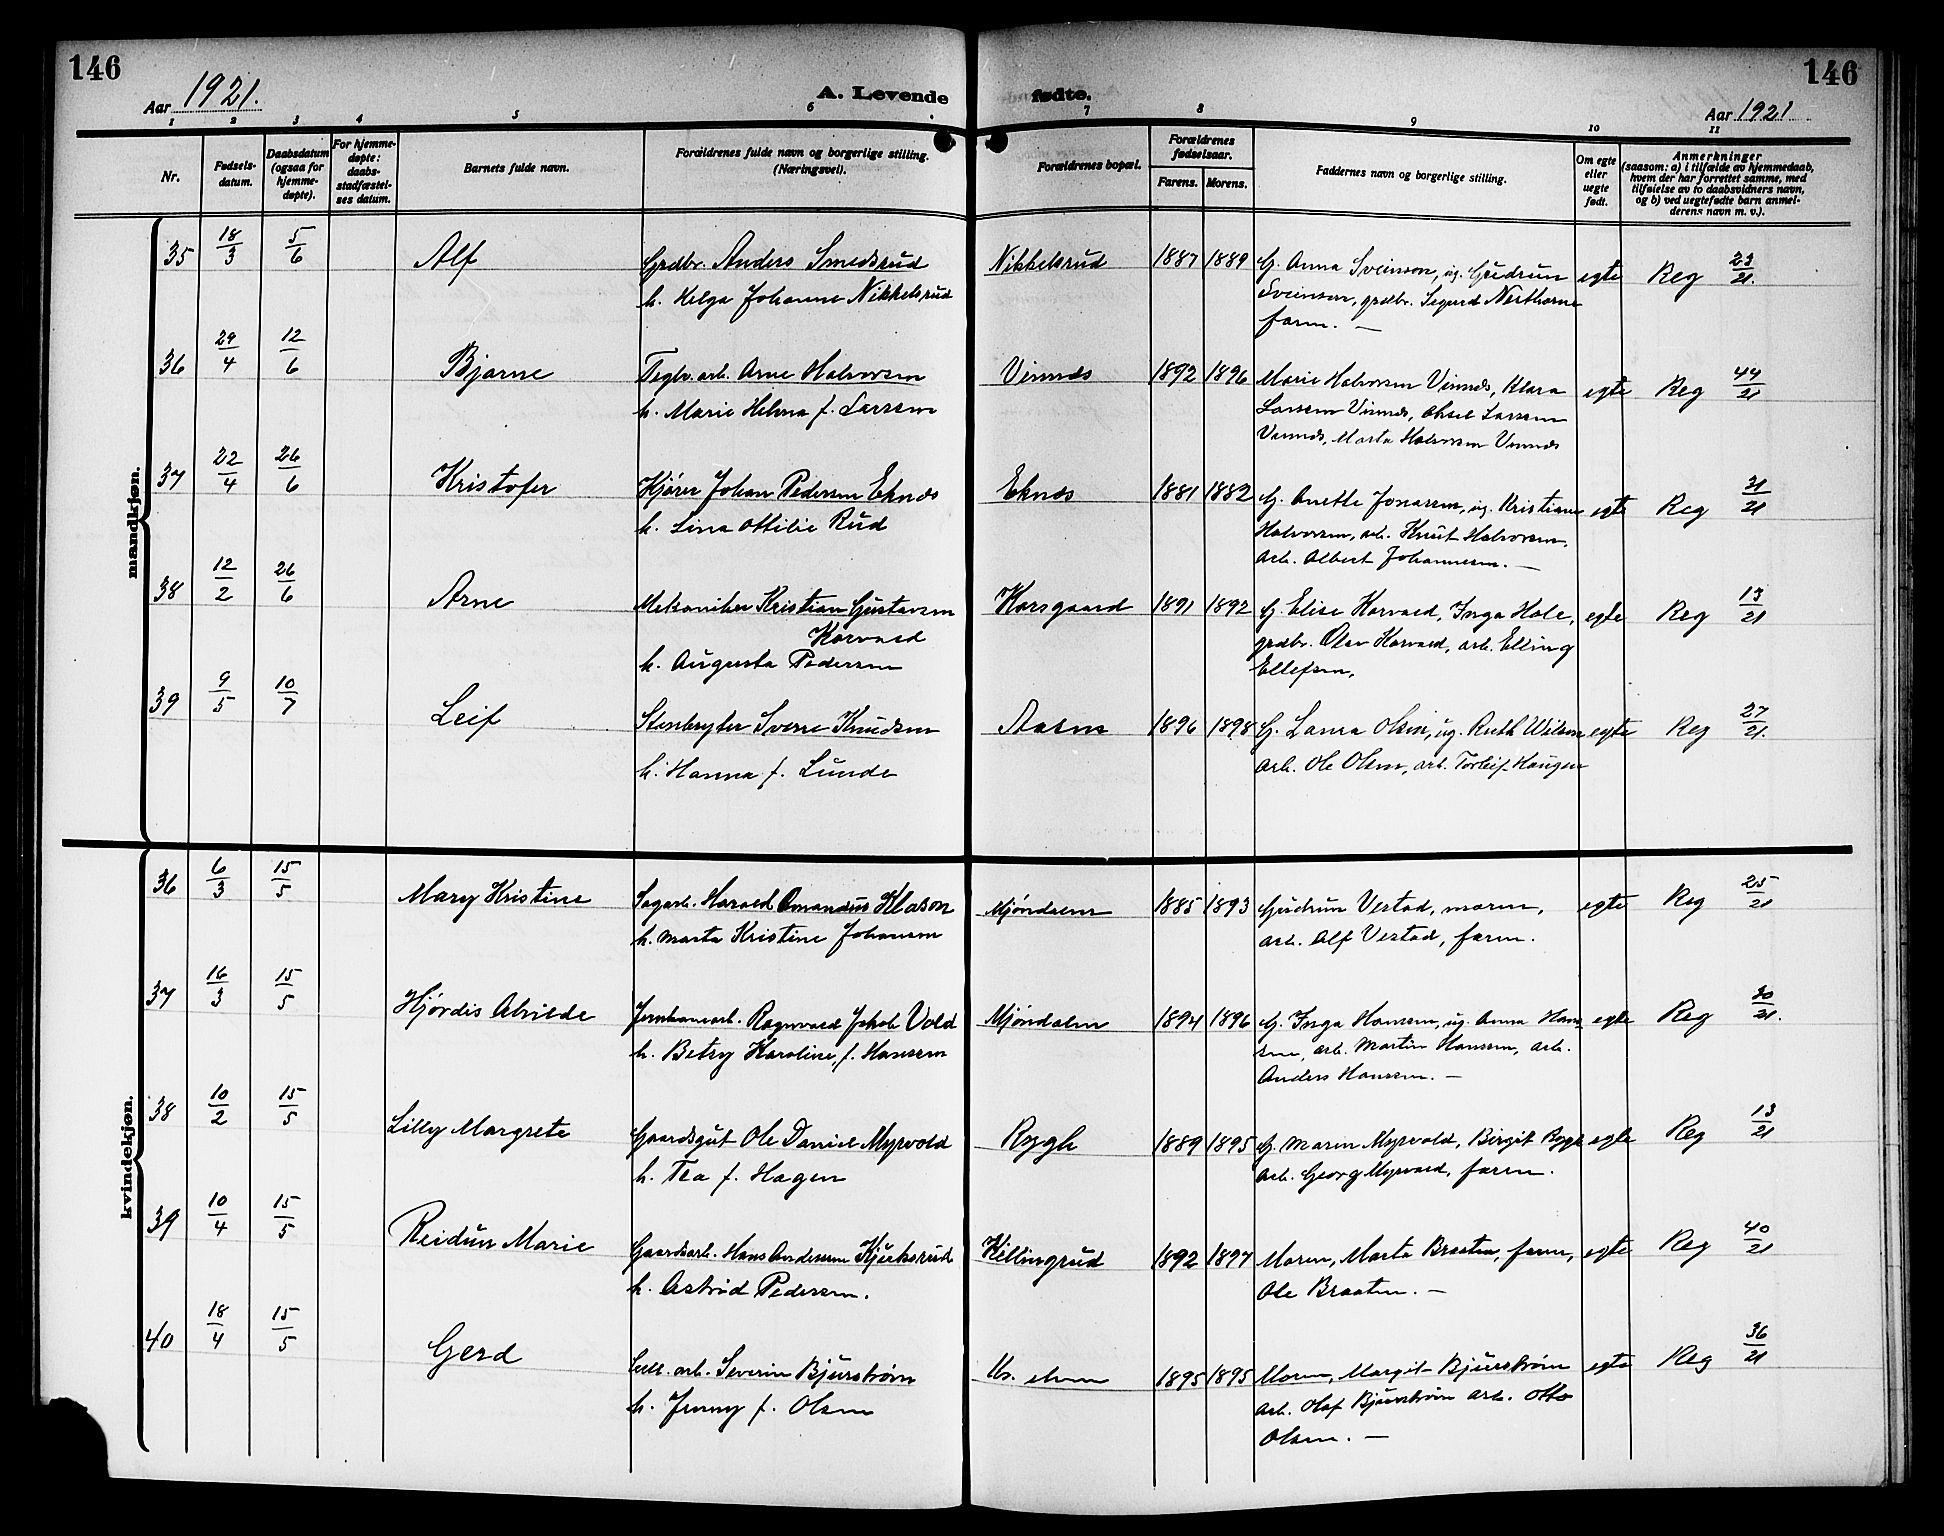 146
146
Aar 1921.
A. Levende fødte.
Aar 1921
1 2 3 4 5 6 7 8 9 10 11
Nr.
Fødsels-
datum.
Daabsdatum
(ogsaa for
hjemme-
døpte).
For hjemme-
døpte:
daabs-
stadfæstel-
ses datum.
Barnets fulde navn.
Forældrenes fulde navn og borgerlige stilling.
(Næringsvei).
Forældrenes bopæl.
Forældrenes
fødselsaar.
Farens. Morens.
Faddernes navn og borgerlige stilling.
Om egte
eller
uegte
født.
Anmerkninger
(saasom: a) i tilfælde av hjemmedaab,
hvem der har forrettet samme, med
tilføielse av to daabsvidners navn,
og b) ved uegtefødte barn anmel-
derens navn m. v.).
mandkjøn.
35 18/3 5/6 Alf Grdbr. Anders Smedsrud Nikkelsrud 1887 1889 G. Anna Svensson, ug. Gudrun egte Reg 23/21.
h. Helga Johanne Nikkelsrud Svensson, grdbr. Sigurd
farm. —
36 29/4 12/6 Bjarne Teglv. arb. Arne Halvorsen Vinnes 1892 1896 Marie Halvorsen Vinnes, Klara egte Reg 44/21
h. Marie Helma f. Larsen Larsen Vinnes, Aksel Larsen
Vinnes, Marta Halvorsen Vinnes
37 22/4 26/6 Kristofer Kjører Johan Pedersen Eknes Eknes 1881 1882 G. Anette Jonassen, ug. Kristiane egte Reg 31/21
h. Lina Ottilie Rud Halvorsen, arb. Knut Halvorsen,
arb. Albert Johannesen. —
38 12/2 26/6 Arne Mekaniker Kristian Gustavsen Korsgaard 1891 1892 G. Elise Korvald, Inga Hole, egte Reg 13/21
Korvald grdbr. Olav Korvald, arb. Elling
h. Augusta Pedersen Ellefsen,
39 9/5 10/7 Leif Stenbryter Sverre Knudsen Aasen 1896 1898 G. Laura Olsen, ug. Ruth Wilson egte Reg 27/21.
h. Hanna f. Lunde arb. Ole Olsen, arb. Torleif Haugen
kvindekjøn.
36 6/3 15/5 Mary Kristine Sagarb. Harald Amandus Klason Mjøndalen 1885 1893 Gudrun Vestad, moren, egte Reg 25/21
h. Marta Kristine Johansen arb. Alf Vestad, farm.
37 16/3 15/5 Hjørdis Alvilde Jernbanearb. Ragnvald Jakob Vold Mjøndalen 1894 1896 G. Inga Hansen, ug. Anna Han- egte Reg 30/21.
h. Betsy Karoline, f. Hansen sen, arb. Martin Hansen, arb.
Anders Hansen. —
38 10/2 15/5 Lilly Margrete Gaardsgut Ole Daniel Myrvold Rygh 1889 1895 G. Maren Myrvold, Birgit Rygh egte Reg 13/21
h. Tea f. Hagen arb. Georg Myrvold, farm.
39 10/4 15/5 Reidun Marie Gaardsarb. Hans Andersen Kjørksrud Killingrud 1892 1897 Moren, Marta Braaten, farm, egte Reg 40/21
h. Astrid Pedersen. Ole Braaten. —
40 18/4 15/5 Gerd Cell. arb. Severin Bjurstrøm 1895 1895 Moren, Margit Bjurstrøm egte Reg 36/21
h. Jenny f. Olsen arb. Olaf Bjurstrøm arb. Otto
Olsen. —